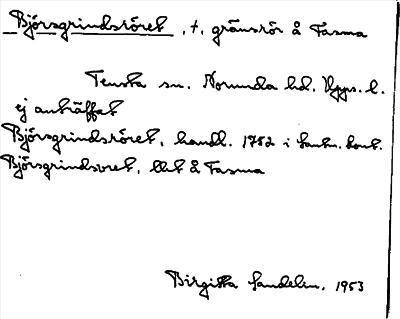 Björsgrindsröret, †, gränsrör å Fasma
Tensta sn. Norunda hd. Upps. l.
ej anträffat
Björsgrindsröret, handl. 1752 i Lantm. kont.
Björsgrindsvret, Ekt å Fasma
Birgitta Sandelin, 1953